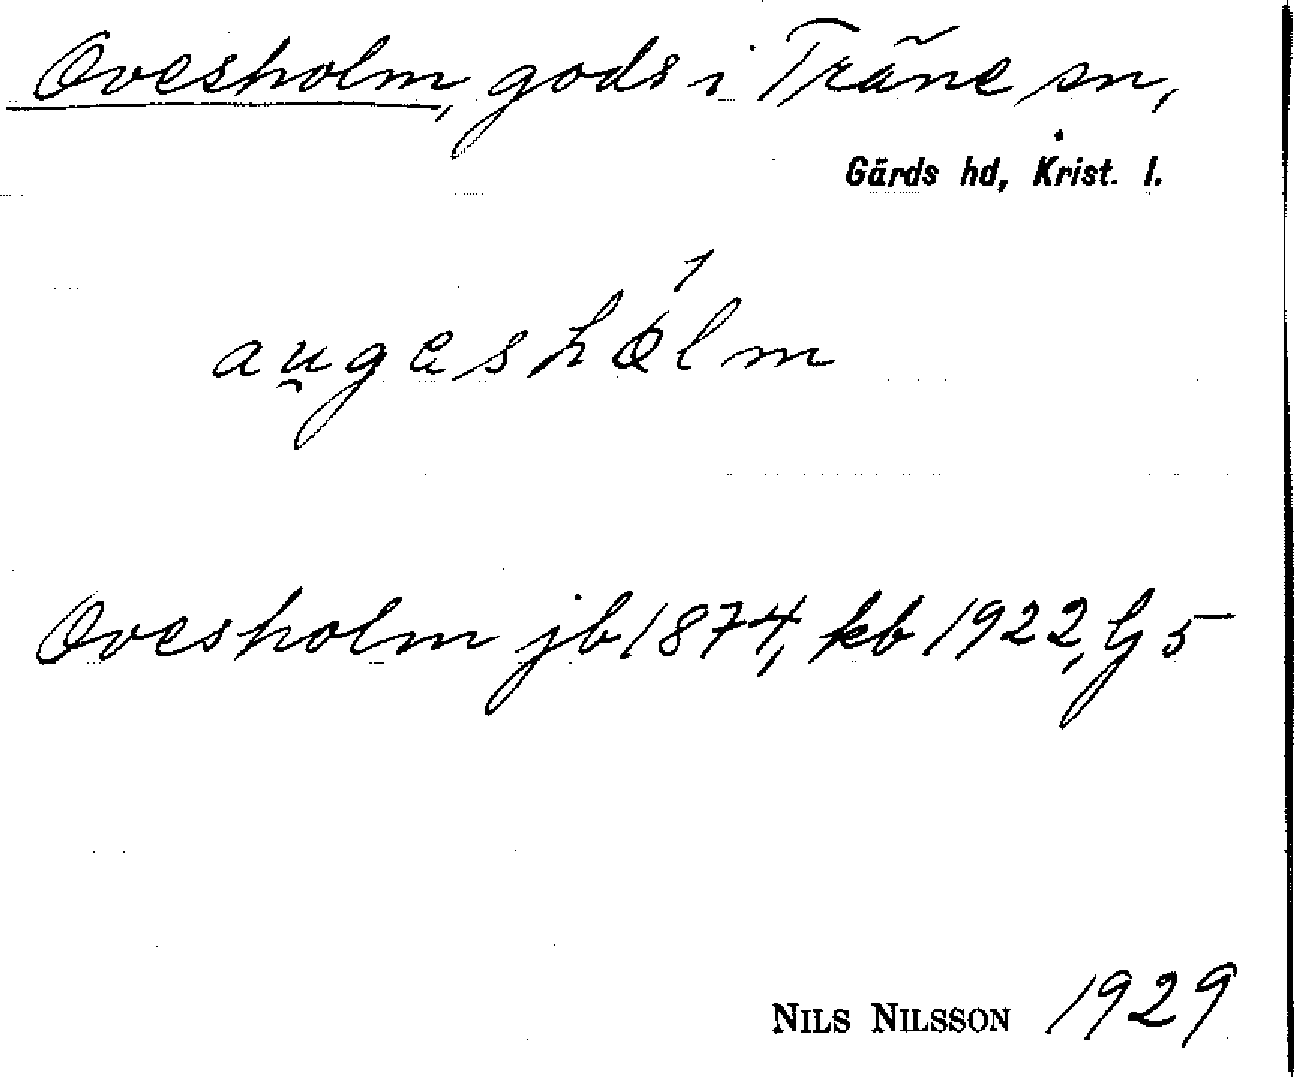 Ovesholm, gods i Träne sn,
Gärds hd, Krist. l.
au̯gəshólm
Ovesholm jb 1874, kb 1922, G 5
NILS NILSSON 1929